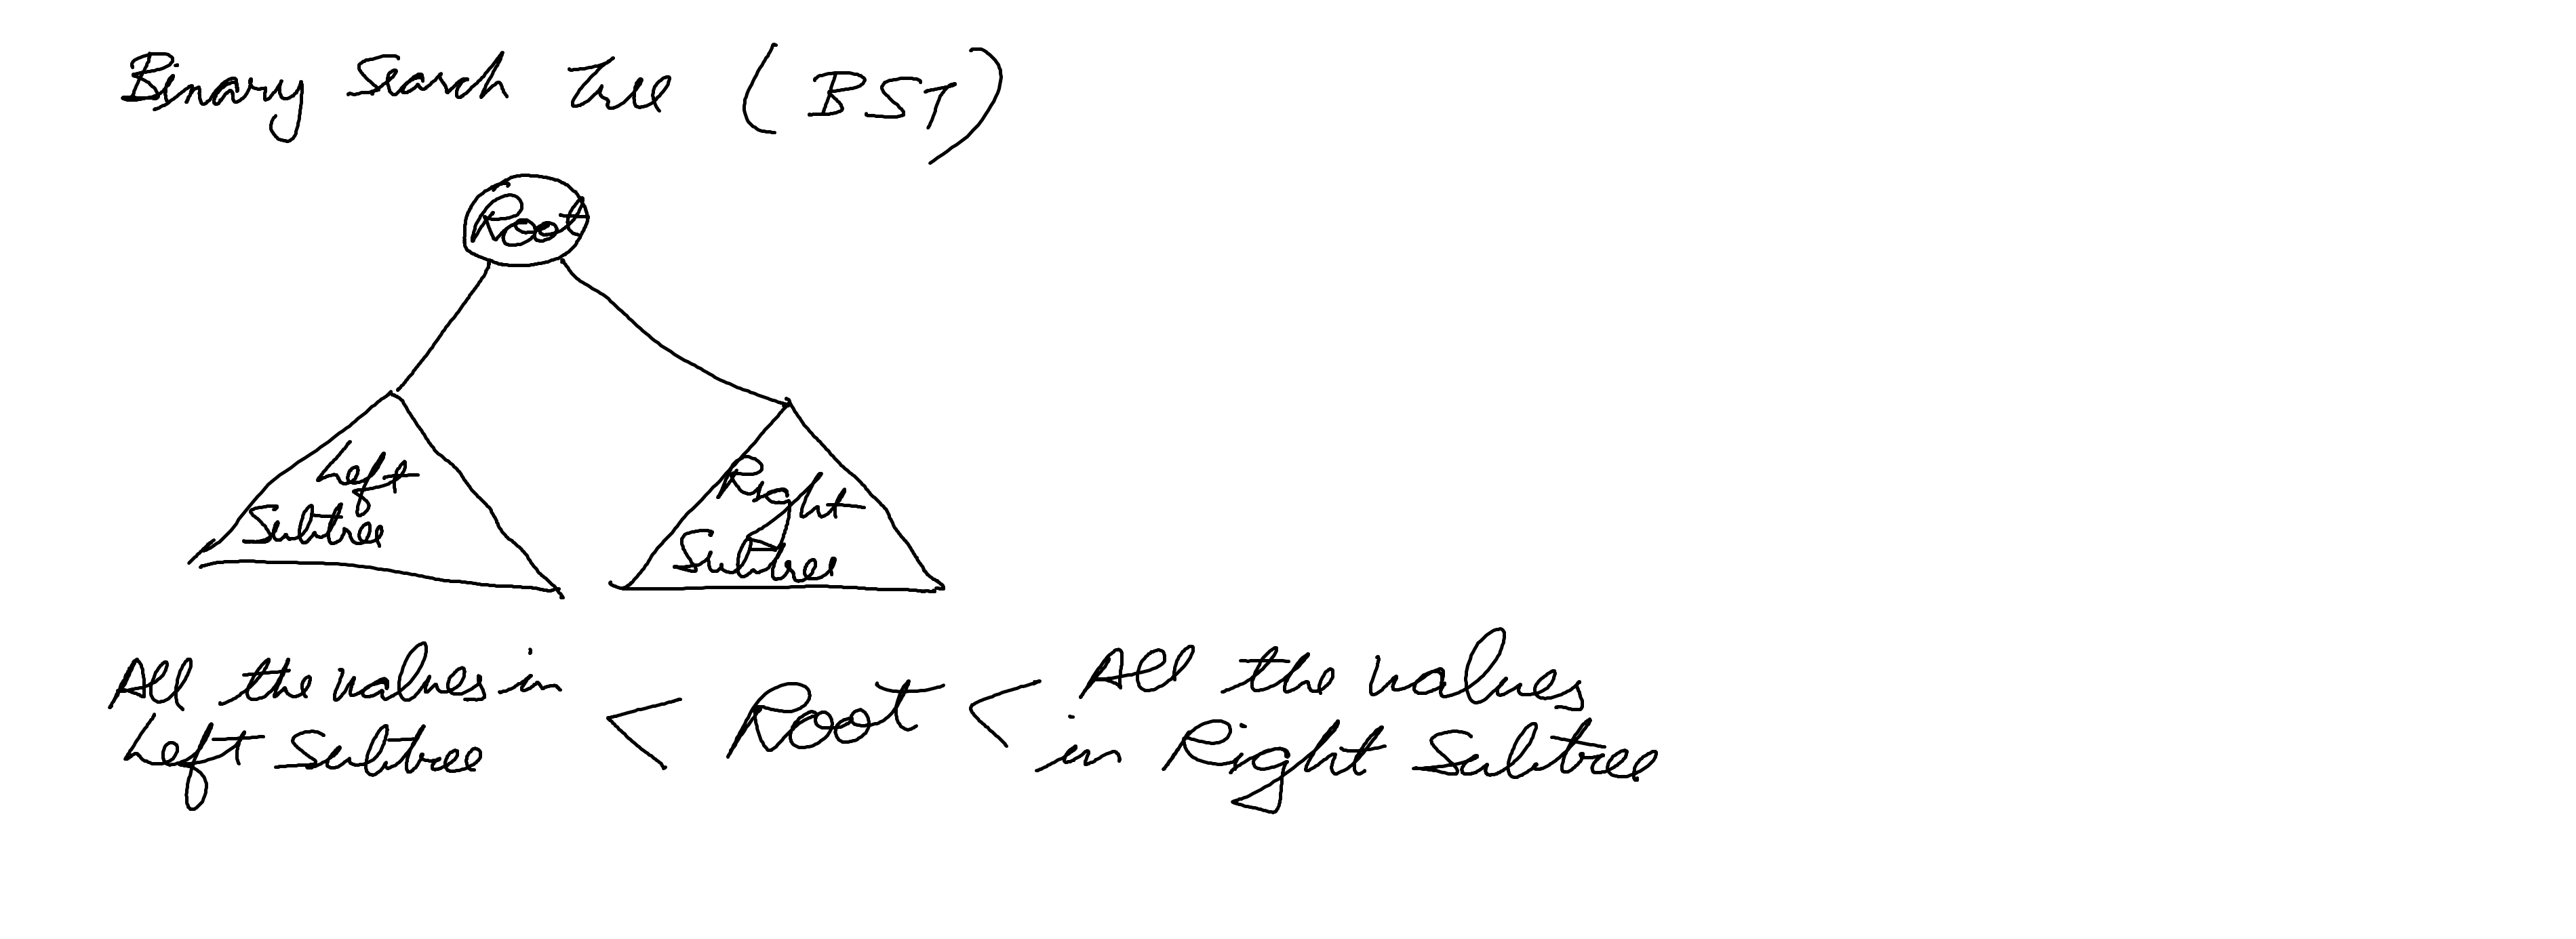 Binary Search Tree (BST)
Root
Left
Subtree
Right
Subtree
All the values in
Left Subtree
< Root <
All the values
in Right Subtree